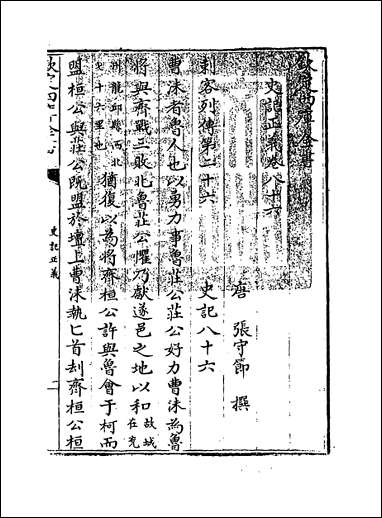 欽定四庫全書
史記正義卷八十六
唐 張守節 撰
刺客列傳第二十六 史記八十六
曹沬者魯人也以勇力事魯莊公莊公好力曹沬為魯
將與齊戰三敗北魯莊公懼乃獻遂邑之地以和故城在兖
州龍邱縣西北
七十六里也猶復以為將齊桓公許與魯會于柯而
盟桓公與莊公既盟於壇上曹沬執匕首刦齊桓公桓
欽定四庫全書
史記正義